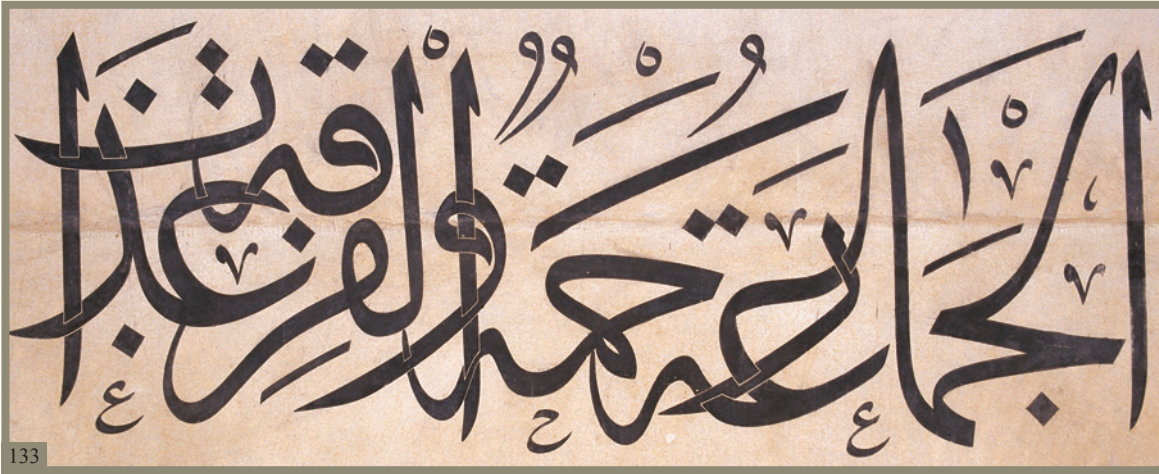 الجماعة رحمة والفرقة عذاب
133